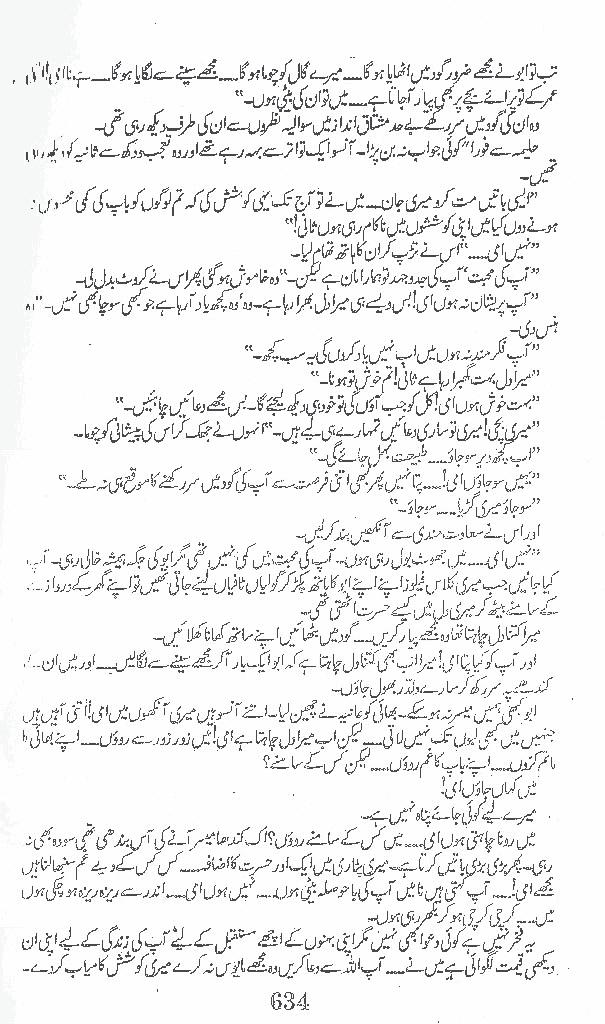 تب تو ابو نے مجھے ضرور گود میں اٹھایا ہو گا.....میرے گال کو چوما ہو گا.....مجھے سینے سے لگایا ہو گا.....ہے ناں امی!!
عمر کے تو پرائے بچے پر بھی پیار آ جاتا ہے.....میں تو ان کی بیٹی ہوں۔"
وہ ان کی گود میں سر رکھے حد مشتاق انداز میں سوالیہ نظروں سے ان کی طرف دیکھ رہی تھی۔
حلیمہ سے فوراً "کوئی جواب نہ بن پڑا۔ آنسو ایک تواتر سے بہہ رہے تھے اور وہ بغور دکھ سے ثانیہ کو
تھیں۔
"ایسی باتیں مت کرو میری جان.....میں نے تو آج تک یہی کوشش کی کہ تم لوگوں کو باپ کی کمی
ہونے دوں لیکن میں اپنی کوششوں میں ناکام رہی ہوں ثانی!"
"نہیں امی....." اس نے تڑپ کر ان کا ہاتھ تھام لیا۔
"آپ کی محبت آپ کی جدوجہد تو ہمارا مان ہے لیکن۔" وہ خاموش ہو گئی پھر اس نے کروٹ بدل لی۔
"آپ پریشان نہ ہوں امی! بس ویسے ہی میرا دل بھر آ رہا ہے۔ وہ، وہ کچھ یاد آ رہا ہے جو کبھی سوچا بھی نہیں۔"
ہنس دی۔
"آپ فکر مند نہ ہوں میں اب نہیں یاد کروں گی یہ سب کچھ۔"
"میرا دل بہت گھبرا رہا ہے ثانی! تم خوش تو ہو نا۔"
"بہت خوش ہوں امی! کل جب آؤں گی تو خود ہی دیکھ لیجئے گا۔ بس مجھے دعائیں چاہئیں۔"
"میری بچی! میری تو ساری دعائیں تمہارے ہی لیے ہیں۔" انہوں نے جھک کر اس کی پیشانی کو چوما۔
"اب کچھ دیر سو جاؤ.....طبیعت بہل جائے گی۔"
"یہیں سو جاؤں امی!.....پتا نہیں پھر کبھی اتنی فرصت سے آپ کی گود میں سر رکھنے کا موقع ہی نہ ملے۔"
"سو جاؤ میری گڑیا.....سو جاؤ۔"
اور اس نے سعادت مندی سے آنکھیں بند کر لیں۔
"نہیں امی.....میں جھوٹ بول رہی ہوں۔ آپ کی محبت میں کمی نہیں تھی مگر ابو کی جگہ ہمیشہ خالی رہی۔ آپ
کیا جانیں جب میری کلاس فیلوز اپنے اپنے ابو کا ہاتھ پکڑ کر گڑیاں ٹافیاں لینے جاتی تھیں تو اپنے گھر کے دروازے
کے سامنے بیٹھ کر میرے دل میں کیسی حسرت اٹھتی تھی۔
میرا کتنا دل چاہتا تھا وہ مجھے پیار کریں.....گود میں بٹھائیں اپنے ساتھ کھانا کھلائیں۔
اور آپ کو کیا پتا امی! میرا اب بھی کتنا دل چاہتا ہے کہ ابو ایک بار آ کر مجھے سینے سے لگا لیں.....اور میں ان کے
کندھے پہ سر رکھ کر سارے درد بھول جاؤں۔
ابو کبھی ہمیں میسر نہ ہو سکے۔ بھائی کو دنیا نے چھین لیا۔ اتنے آنسو ہیں میری آنکھوں میں امی!! اتنی آہیں ہیں
جنہیں میں کبھی لبوں تک نہیں لائی.....لیکن اب میرا دل چاہتا ہے امی! میں زور زور سے روؤں.....اپنے بھائی کا
ماتم کروں.....اپنے باپ کا غم روؤں.....لیکن کس کے سامنے؟
میں کہاں جاؤں امی!
میرے لیے کوئی جائے پناہ نہیں ہے۔
میں رونا چاہتی ہوں امی.....میں کس کے سامنے روؤں؟ اک کندھا میسر آنے کی آس بندھی تھی سو وہ بھی نہ
رہی۔ پھر بڑی بڑی باتیں کرتا ہے۔ میری پٹاری میں ایک اور حسرت کا اضافہ.....کس کس کے دیے غم سنبھالنا ہیں
مجھے امی!.....آپ کہتی ہیں ناں میں آپ کی باحوصلہ بیٹی ہوں.....نہیں ہوں امی.....اندر سے ریزہ ریزہ ہو چکی ہوں
میں.....کرچی کرچی ہو کر بکھر رہی ہوں۔
یہ فخر نہیں ہے کوئی دعوا بھی نہیں مگر اپنی بہنوں کے اچھے مستقبل کے لیے آپ کی زندگی کے لیے اپنی
دیکھی قیمت لگوائی ہے میں نے.....آپ اللہ سے دعا کریں وہ مجھے مایوس نہ کرے میری کوشش کامیاب کر دے۔
634